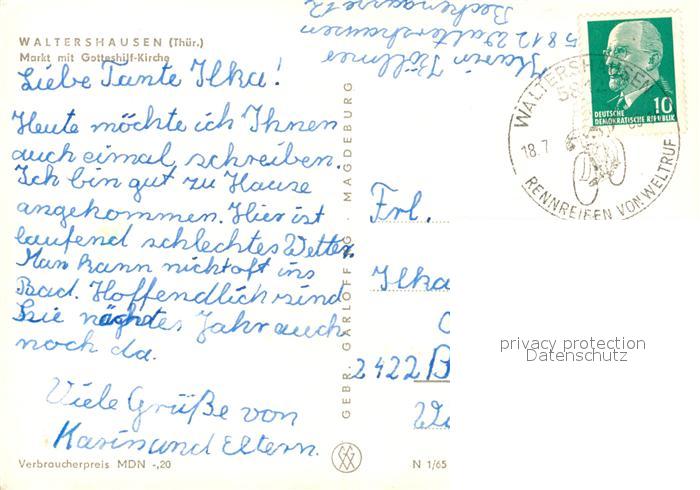 WALTERSHAUSEN (Thür.)
Markt mit Gotteshilf-Kirche
Liebe Tante Ilka!
Heute möchte ich Ihnen
auch eimal schreiben.
Ich bin gut zu Hause
angekommen. Hier ist
laufend schlechtes Wetter.
Man kann nicht oft ins
Bad. Hoffendlich sind
Sie nächstes Jahr auch
noch da.
Viele Grüße von
Karin und Eltern.
Verbraucherpreis MDN -,20
GEBR. GARLOFF KG · MAGDEBURG
N 1/65
Karin
5812 Waltershausen
WALTERSHAUSEN
18.7
RENNREIFEN VON WELTRUF
10
DEUTSCHE
DEMOKRATISCHE REPUBLIK
Frl.
Ilka
2422 B
privacy protection
Datenschutz